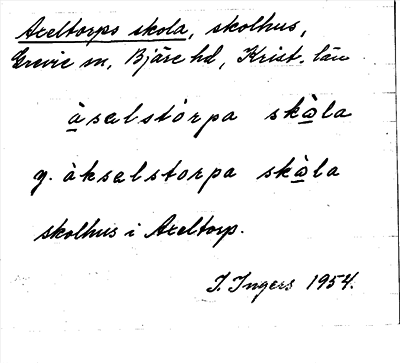 Axeltorps skola, skolhus,
Grevie sn, Bjäre hd, Krist. län
àsəlstórpa skὰla
y. àksəlstorpa skὰla
skolhus i Axeltorp.
I. Ingers 1954.